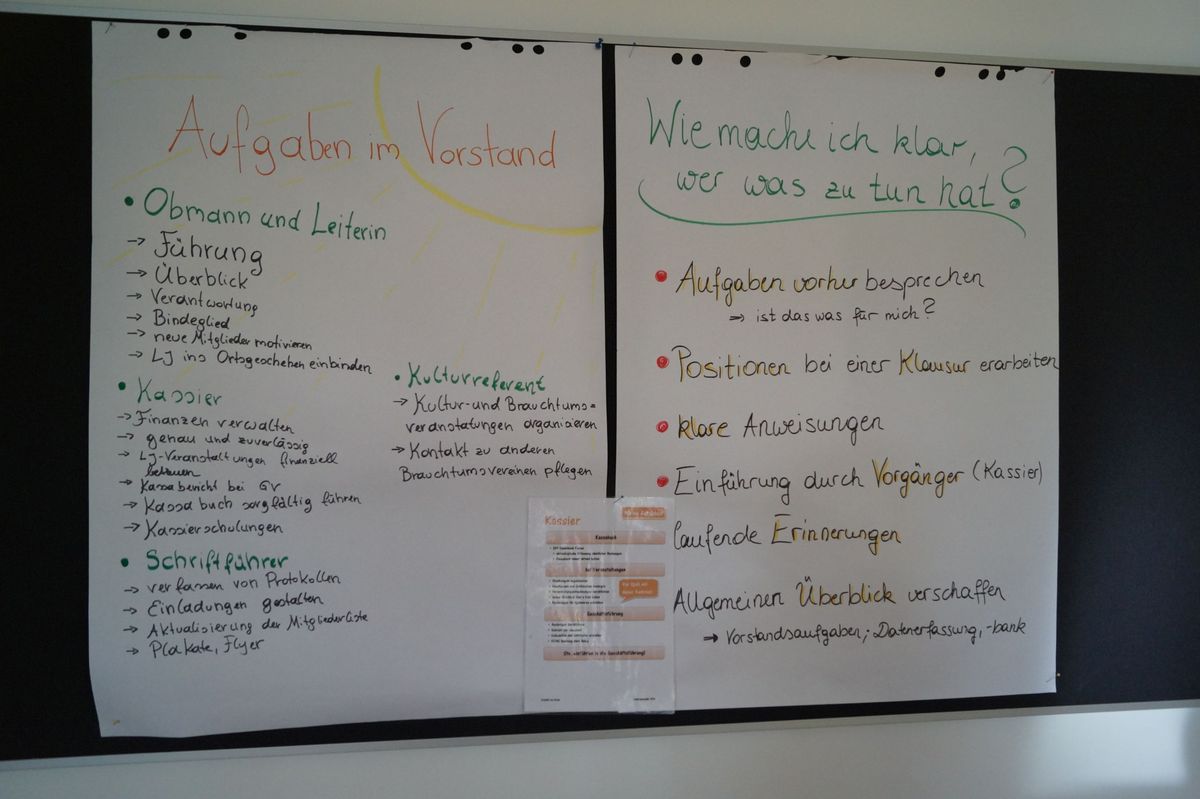 Aufgaben im Vorstand
• Obmann und Leiterin
→ Führung
→ Überblick
→ Verantwortung
→ Bindeglied
→ neue Mitglieder motivieren
→ LJ ins Ortsgeschehen einbinden
• Kassier
→ Finanzen verwalten
→ genau und zuverlässig
→ LJ-Veranstaltungen finanziell
betreuen
→ Kassabericht bei GV
→ Kassabuch sorgfältig führen
→ Kassierschulungen
• Schriftführer
→ verfassen von Protokollen
→ Einladungen gestalten
→ Aktualisierung der Mitgliederliste
→ Plakate, Flyer
• Kulturreferent
→ Kultur- und Brauchtums=
veranstatungen organisieren
→ Kontakt zu anderen
Brauchtumsvereinen pflegen
Wie mache ich klar,
wer was zu tun hat?
• Aufgaben vorher besprechen
⇒ ist das was für mich?
• Positionen bei einer Klausur erarbeiten
• klare Anweisungen
• Einführung durch Vorgänger (Kassier)
laufende Erinnerungen
Allgemeinen Überblick verschaffen
→ Vorstandsaufgaben; Datenerfassung, -bank
Kassier
Kassabuch
bei Veranstaltungen
Geschäftsführung